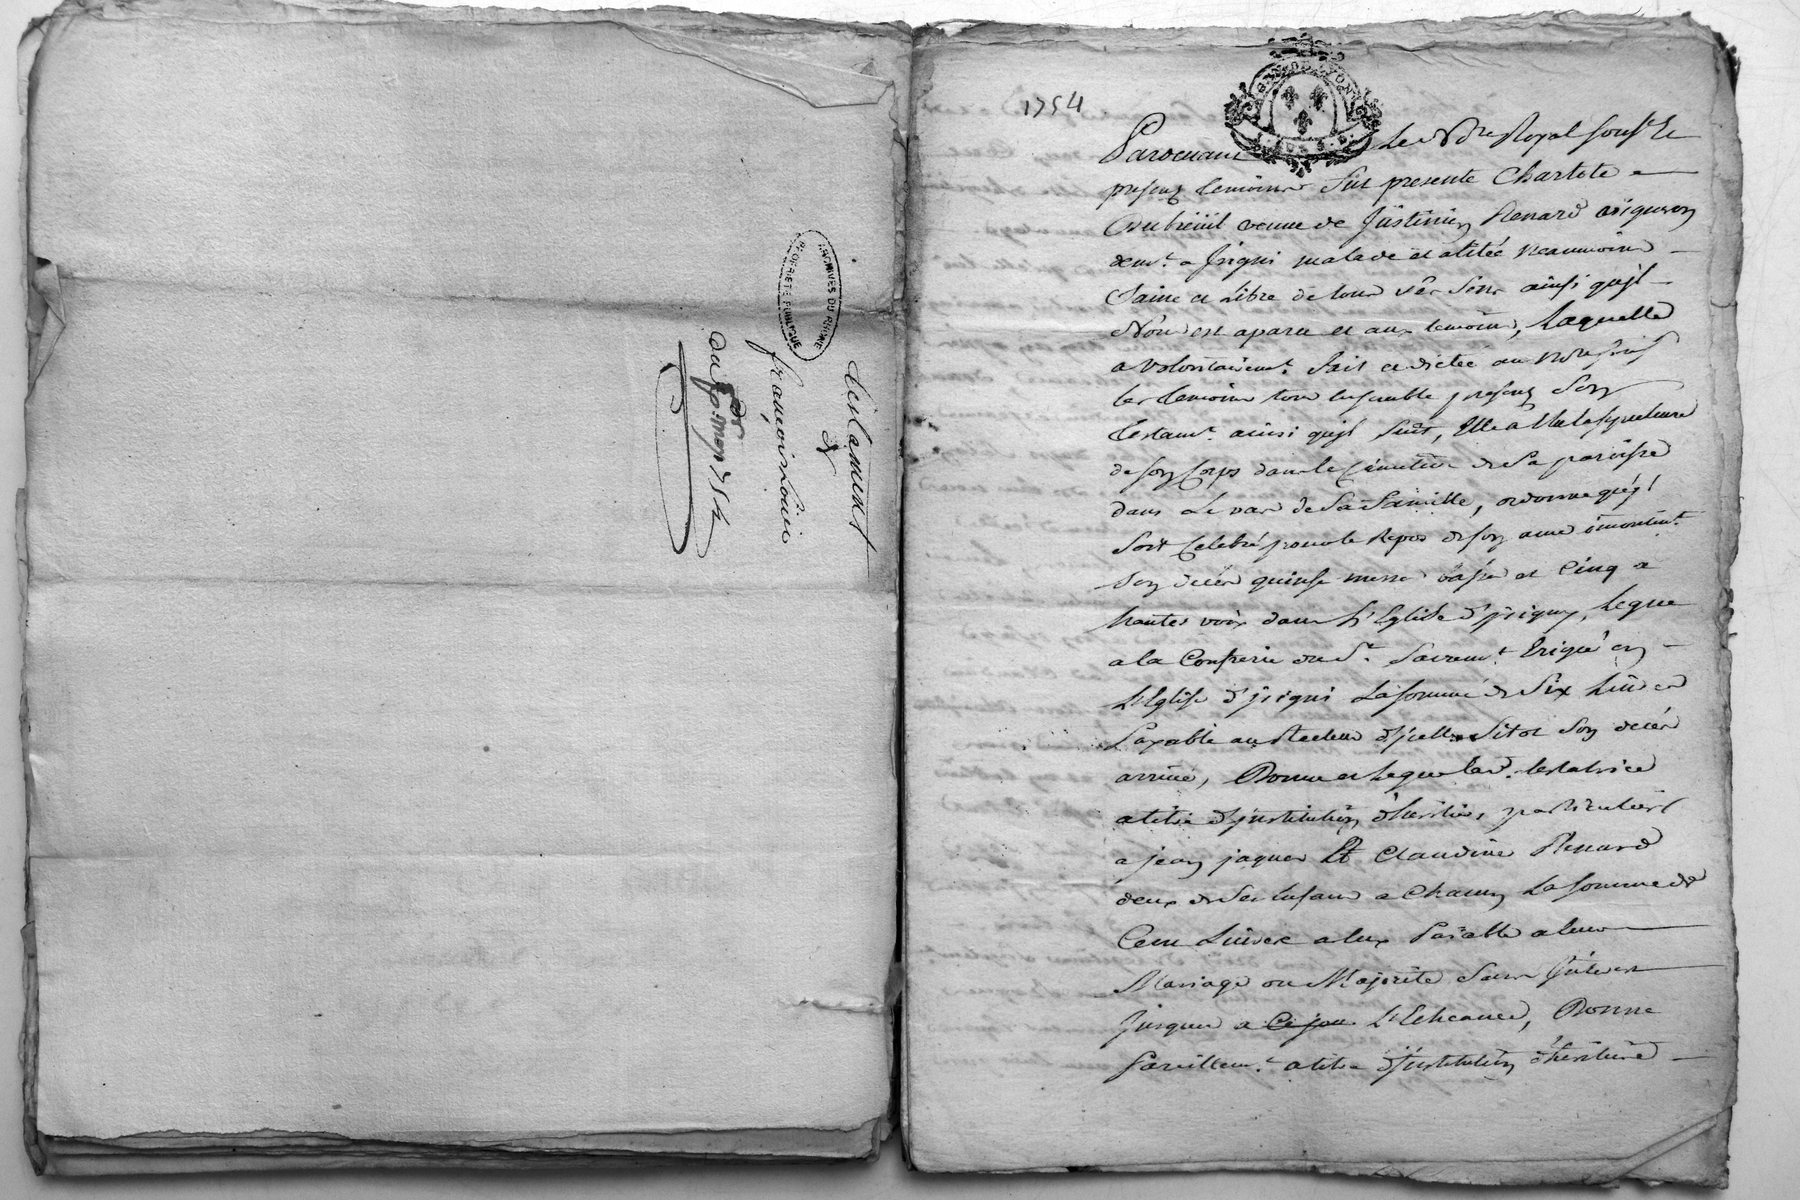 ARCHIVES DU RHONE
PROPRIETE PUBLIQUE
testament
de
françois
du
1754
GEN. DE LYON
Pardevant Le Nre Royal sousé Et
presens temoins fut presente Charlote
Dubreüil veuve de Justinien Renard vigneron
demt. a Jrigni malade et alitée neanmoins
Saine et Libre de tous ses Sens ainsi qu'jl
Nous est aparu et aux temoins, Laquelle
a volontairemt. fait et dictée au Nre
les temoins tous ensemble presens Son
testamt. ainsi qu'jl Suit, Elle a Elu la sepulture
de son Corps dans le Cimetiere de Sa paroisse
dans Le vas de Sa famille, ordonne qu'jl
Soit Celebré pour le Repos de son ame
Son deces quinse messes basse et Cinq a
hautes voix dans L'Eglise d'jrigny, Legue
a la Confrerie du St. Sacremt. Erigée en
L'Eglise d'jrigni La somme de Six Livres
Payable au Recteur d'jcelle Sitot Son deces
arrivé, Donne et Legue lad. testatrice
a titre d'jnstitution d'heritiers particuliers
a jean jaques Et Claudine Renard
deux de Ses Enfans a Chacun La somme de
Cent Livres a Eux Païable a leur
Mariage ou Majorité Sans Jnterets
Jusques a ce jour L'Echeance, Donne
Pareillemt. a titre d'Jnstitution d'heritiere